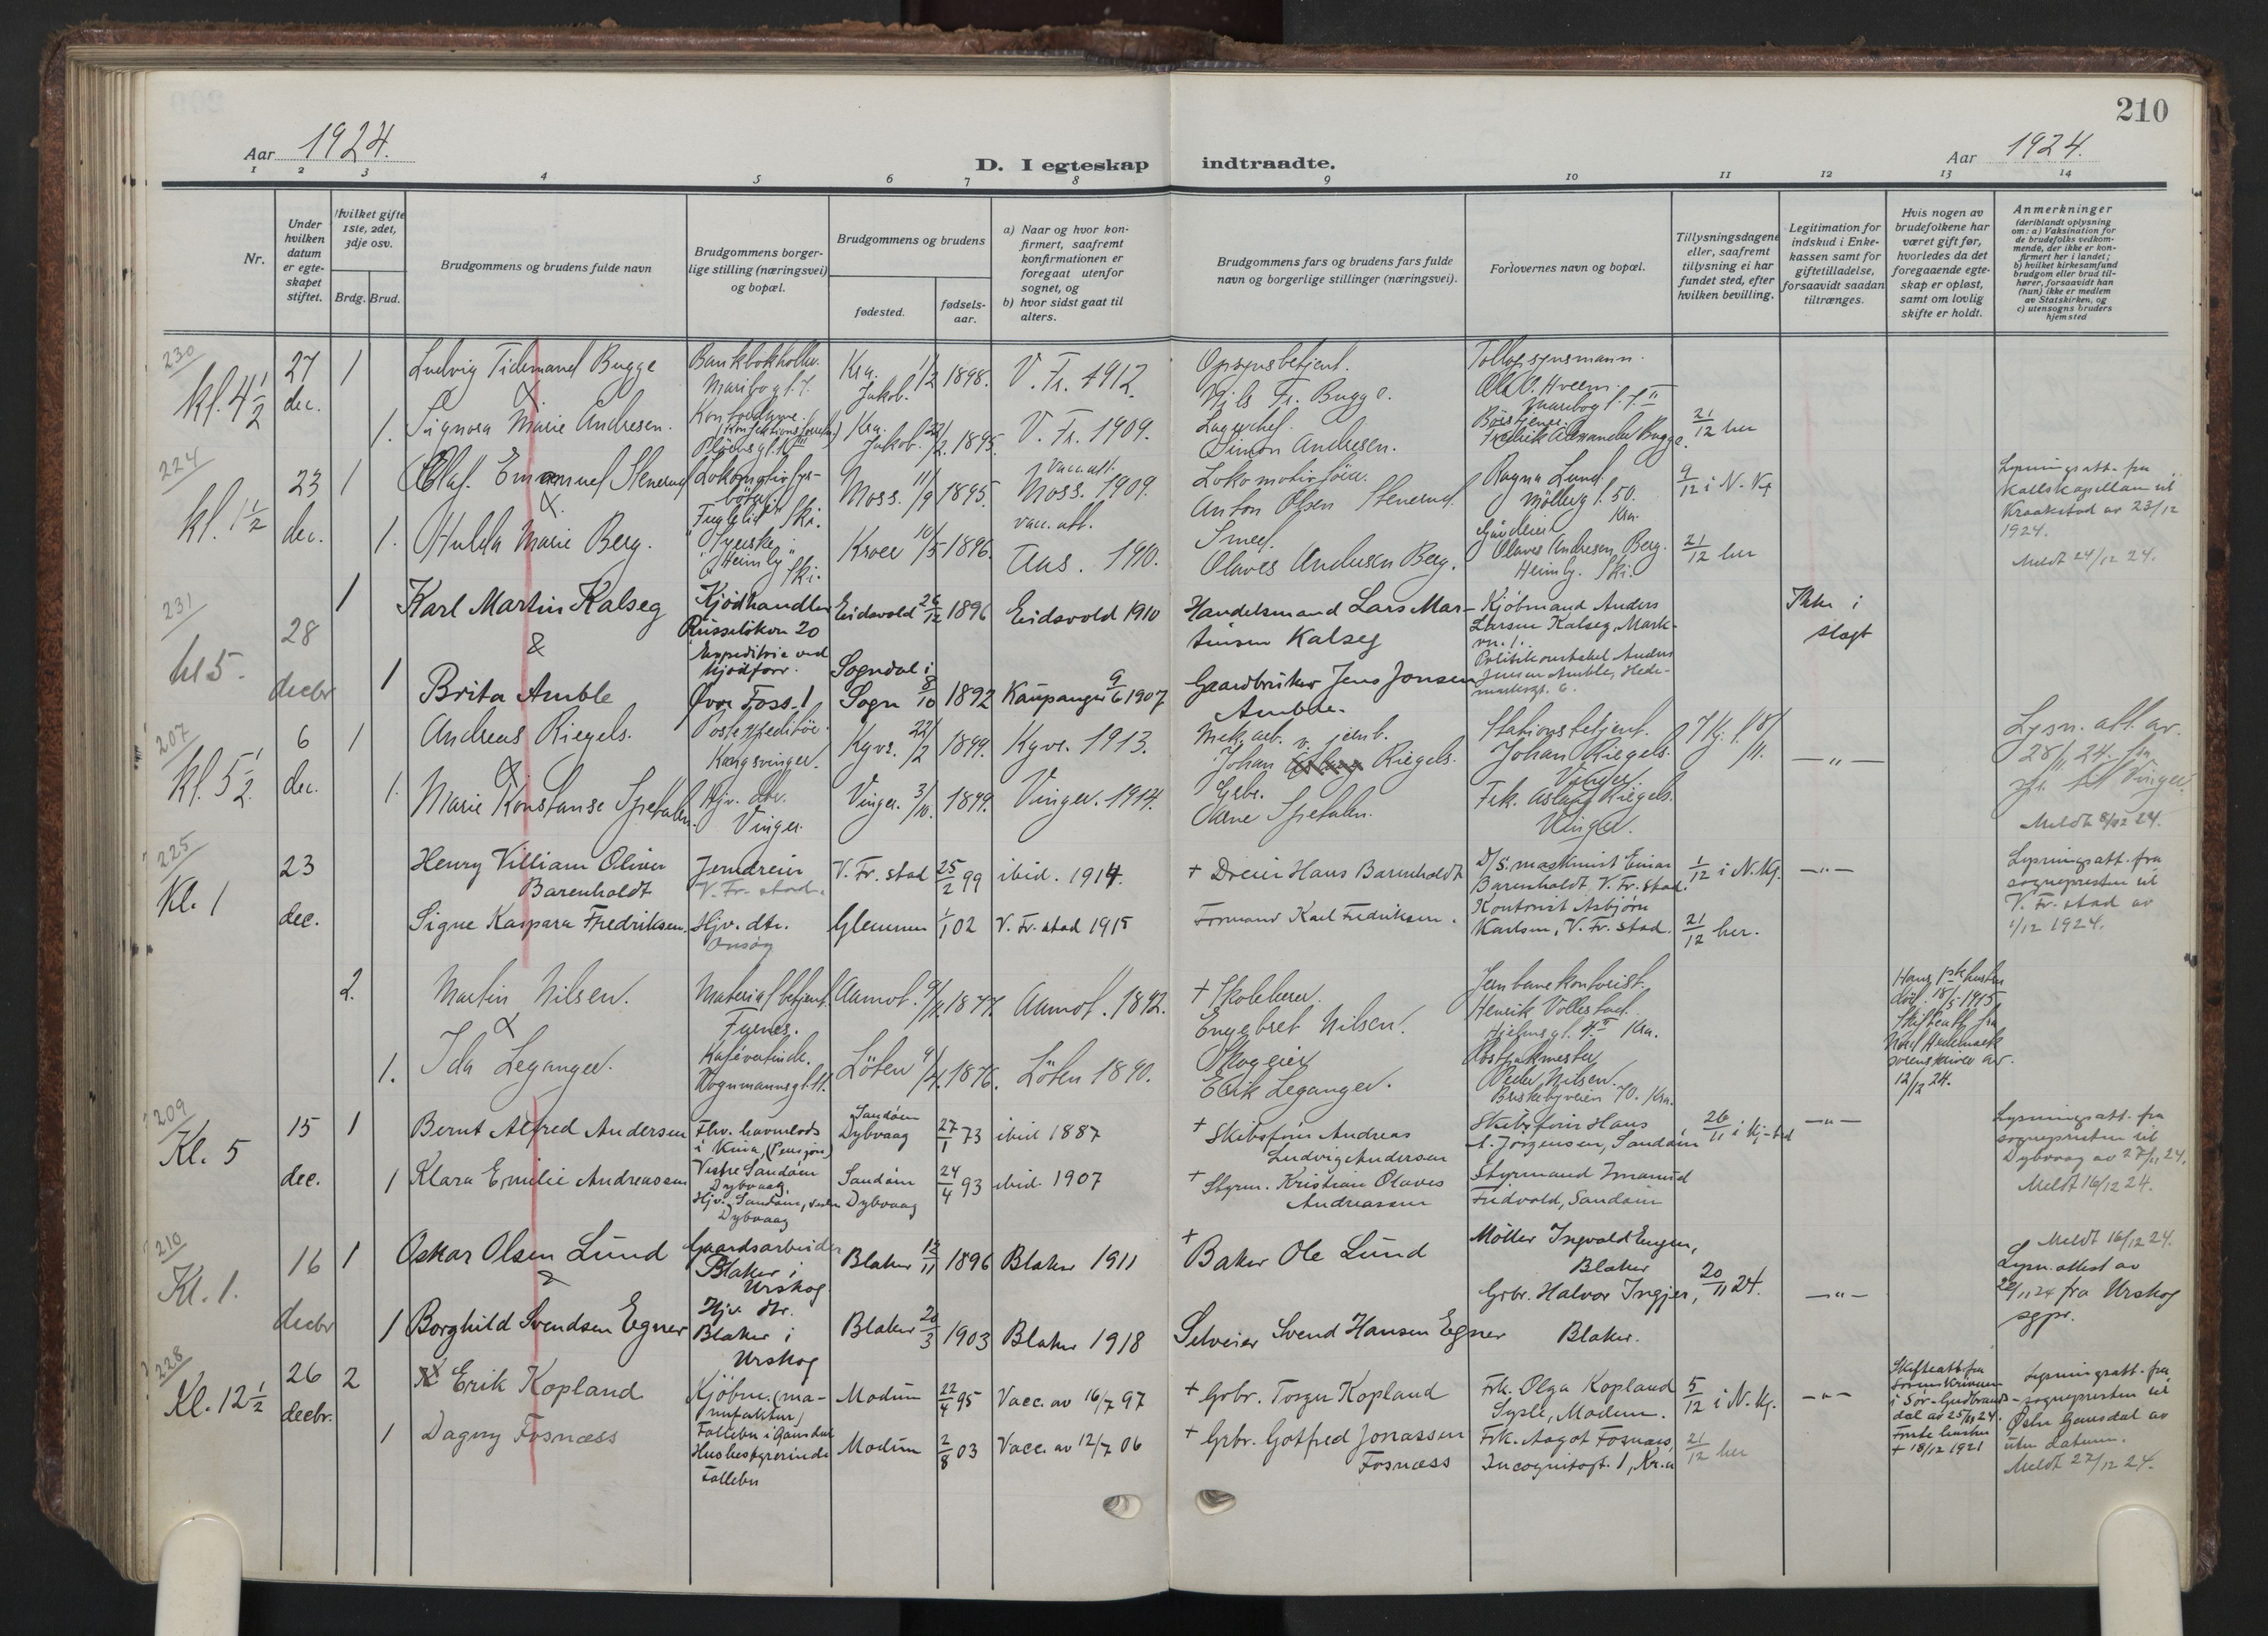 210
Aar 1924.
D. I egteskap indtraadte.
Aar 1924.
1 2 3 4 5 6 7 8 9 10 11 12 13 14
Nr.
Under hvilken datum er egteskapet stiftet.
Hvilket gifte 1ste, 2det, 3dje osv.
Brdg. Brud.
Brudgommens og brudens fulde navn
Brudgommens borgerlige stilling (næringsvei) og bopæl.
Brudgommens og brudens
fødested.
fødselsaar.
a) Naar og hvor konfirmert, saafremt konfirmationen er foregaat utenfor sognet, og
b) hvor sidst gaat til alters.
Brudgommens fars og brudens fars fulde navn og borgerlige stillinger (næringsvei).
Forlovernes navn og bopæl.
Tillysningsdagene eller, saafremt tillysning ei har fundet sted, efter hvilken bevilling.
Legitimation for indskud i Enkekassen samt for giftetilladelse, forsaavidt saadan tiltrænges.
Hvis nogen av brudefolkene har været gift før, hvorledes da det foregaaende egteskap er opløst, samt om lovlig skifte er holdt.
Anmerkninger
(deriblandt oplysning om: a) Vaksination for de brudefolks vedkommende, der ikke er konfirmert her i landet; b) hvilket kirkesamfund brudgom eller brud tilhører, forsaavidt han (hun) ikke er medlem av Statskirken, og c) utensogns bruders hjemsted
230
kl. 4 1/2
27 dec.
1
Ludvig Tidemand Bugge
&
Bankbokholder.
Maribogt. 7.
Kra. Jakob.
1/2 1898.
V. Fr. 1912.
Opsynsbetjent.
Nils Fr. Bugge.
Tollopsynsmann.
Ol. O. Hveem.
Maribog t. 7 II
1.
Signora Marie Andresen.
Kra. Jakob.
22/2. 1895.
V. Fr. 1909.
Lagerchef.
Simon Andresen.
Fredrik Alexander Bugge.
21/12 her
224
kl. 1 1/2
23 dec.
1
Olaf Emanuel Stenerud
&
Lokomotivfyrbøter.
"Fuglelid" Ski.
Moss.
11/9 1895.
Vacc. att.
Moss. 1909.
Lokomotivfører.
Anton Olsen Stenerud.
Ragna Lund.
Møllerg t. 50. Kra.
9/12 i N. Kg
Lysningsatt. fra
Kallskapellan til
Kraakstad av 23/12
1924.
Meldt 24/12 24.
1.
Hulda Marie Berg.
Syerske.
"Heimly" Ski.
Kroer
10/5 1896.
vacc. att.
Aas. 1910.
Smed.
Olaves Andresen Berg.
Gårdeier
Olaves Andresen Berg.
Heimly. Ski.
21/12 her
231
kl 5.
28 decbr
1
Karl Martin Kalseg
&
Kjødhandler
Russeløkvn 20
Eidsvold
26/12 1896
Eidsvold 1910
Handelsmand Lars Martinsen Kalseg
Kjøbmand Anders
Larsen Kalseg, Markvn. 1.
Ikke i slegt
1
Brita Amble
Expeditrice ved
kjødforr.
Øvre Foss. 1
Sogndal i Sogn
8/10 1892
Kaupanger 9/6 1907
Gaardbruker Jens Jonsen Amble.
Politikonstabel Anders
Jensen Amble, Hedemarksgt. 6.
207
kl. 5 1/2.
6 dec.
1
Andreas Riegels.
&
Postexpeditør.
Kongsvinger.
Kgvr.
22/2 1899.
Kgvr. 1913.
Mek. arb. v. jernb.
Johan Riegels.
Stationsbetjent.
Johan Riegels.
Vinger.
— " —
Lysn. att. av
28/11 24. fra
spr. til Vinger.
Meldt 8/12 24.
1.
Marie Konstanse Spetalen.
Hjv. dtr.
Vinger.
Vinger.
3/10. 1899.
Vinger. 1914.
Grbr.
Arne Spetalen.
Frk. Aslaug Riegels.
Vinger.
225
Kl. 1
23 dec.
Henry Villiam Oliver
Barenholdt
Jerndreier
V. Fr. stad.
V. Fr. stad
25/2 99
ibid. 1914.
+ Dreier Hans Barenholdt
D/S. maskinist Einar
Barenholdt V. Fr. stad.
1/12 i N. Kg.
— " —
Lysningsatt. fra
sognepresten til
V. Fr. stad av
1/12 1924.
Signe Kaspara Fredriksen.
Hjv. dtr.
Onsøy
Glemmen
1/1 02
V. Fr. stad 1915
Formand Karl Fredriksen.
Kontorist Asbjørn
Karlsen, V. Fr. stad.
21/12 her.
2.
Martin Nilsen.
&
Materialbetjent
Aamot.
9/11. 1877.
Aamot. 1892.
+ Skolelærer.
Engebret Nilsen.
Jernbanekontorist.
Henrik Vollestad.
Hjelmsg t. 4. II Kra.
Hans 1ste hustru
død. 18/5 1915
Skifteatt. fra
Nord Hedemark
sorenskriver av.
12/12 24.
1.
Ida Leganger.
Kafévertinde.
Vognmannsg t. 11.
Løten
9/4. 1876.
Løten 1890.
Skogeier
Erik Leganger.
Postpakmester
Peder Nilsen.
Briskebyveien 70. Kra.
209
Kl. 5
15 dec.
1
Bernt Alfred Andersen
Fhv. havnelods
i Kina, (Pensjon)
Vestre Sandøen
Dybvaag
Sandøen
Dybvaag
27/1 73
ibid 1887
+ Skibsfører Andreas
Ludvig Andersen
Skibsfører Hans
A. Jørgensen, Sandøen
26/11 i Kj-bed
— " —
Lysningsatt. fra
sognepresten til
Dybvaag av 27/11 24.
Meldt 16/12 24.
1
Klara Emilie Andreassen
Hjv. Sandøen,
Dybvaag
Sandøen
Dybvaag
24/4 93
ibid 1907
+ Styrm. Kristian Olaves
Andreassen
Styrmand Imanuel
Fredvold, Sandøen
210
Kl. 1.
16 decbr
1
Oskar Olsen Lund
&
Gaardsarbeider
Blaker i Urskog
Blaker
12/11 1896
Blaker 1911
+
Baker Ole Lund
Møller Ingvald Engen,
Blaker
20/11 24.
— " —
Meldt 16/12 24.
Lysn. attest av
22/11 24 fra Urskog
sgpr.
1
Borghild Svendsen Egner
Hjv. dtr.
Blaker i Urskog
Blaker
20/3 1903
Blaker 1918
Selveier Svend Hansen Egner
Grbr. Halvor Ingjer,
Blaker.
228
Kl. 12 1/2
26 decbr.
2
Erik Kopland
Kjøbm. (manufaktur)
Follebu i Gausdal
Modum
22/4 95
Vacc. av 16/7 97
+ Grbr. Torger Kopland
Frk. Olga Kopland
Sysle, Modum.
5/12 i N. Kg.
— " —
Skifteatt. fra
sorenskriveren
i Sør-Gudbrandsdal av 25/11 24.
Første hustru
+ 18/12 1921
Lysningsatt. fra
sognepresten til
Østre Gausdal av
uten datum.
Meldt 27/12 24.
1
Dagny Fosnæss
Husbestyrerinde
Follebu
Modum
2/8 03
Vacc. av 12/7 06
+ Grbr. Gotfred Jonassen
Fosnæss
Frk. Aagot Fosnæs,
Incognitogt. 1, Kr.a
21/12 her